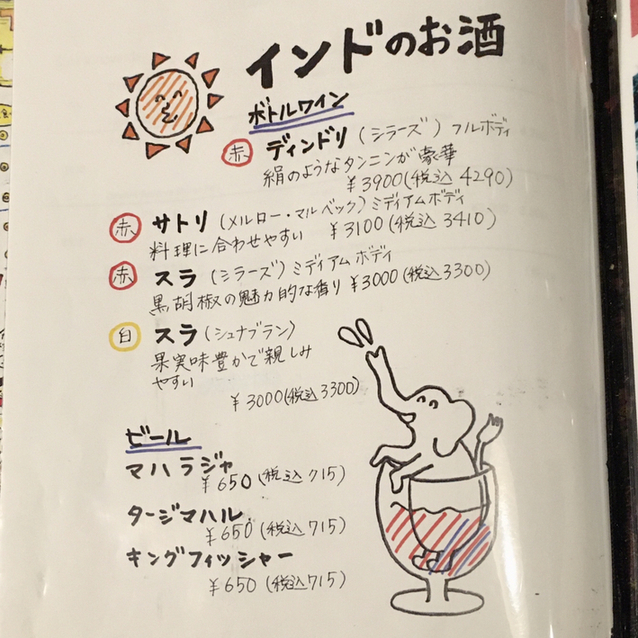 インドのお酒
ボトルワイン
赤 ディンドリ（シラーズ）フルボディ
絹のようなタンニンが豪華
¥3900(税込 4290)
赤 サトリ（メルロー・マルベック）ミディアムボディ
料理に合わせやすい ¥3100(税込 3410)
赤 スラ（シラーズ）ミディアムボディ
黒胡椒の魅力的な香り ¥3000(税込3300)
白 スラ（シュナブラン）
果実味豊かで親しみ
やすい
¥3000(税込3300)
ビール
マハラジャ
¥650(税込715)
タージマハル
¥650(税込715)
キングフィッシャー
¥650(税込715)